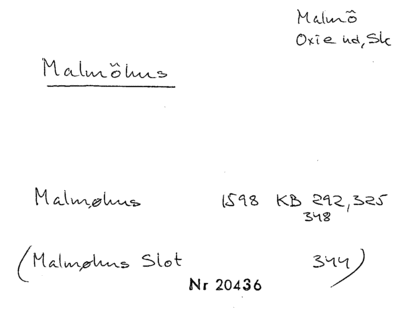 Malmö
Oxie hd, Sk
Malmöhus
Malmøhus 1598 KB 292, 325
348
(Malmøhus Slot 344)
Nr 20436